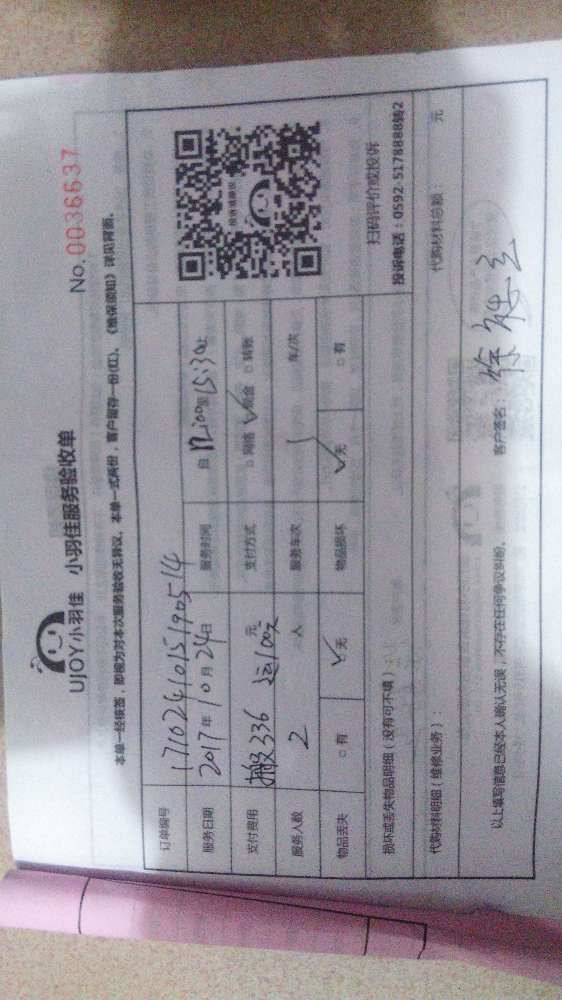 UJOY小羽佳 小羽佳服务验收单
No. 0036637
本单一经核签，即视为对本次服务验收无异议。本单一式两份，客户留存一份(红)。《维保须知》详见背面。
订单编号 1710241015190514
服务日期 2017年10月24日 服务时间 自 12:00至15:30止
支付费用 搬336 运100元 元 支付方式 □网络 ✓现金 □转账
服务人数 2 人 服务车次 1 车/次
物品丢失 □有 ✓无 物品损坏 ✓无 □有
投诉或建议
扫码评价或投诉
投诉电话：0592-5178888转2
损坏或丢失物品明细（没有可不填）：
代购材料明细（维修业务）： 代购材料总额： 元
以上填写信息已经本人确认无误，不存在任何争议纠纷。 客户签名：徐